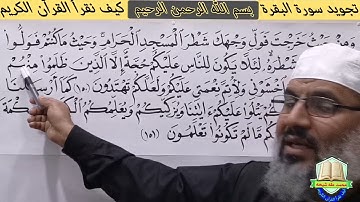 تجويد سورة البقرة
بسم الله الرحمن الرحيم
كيف نقرأ القرآن الكريم
وَمِنْ حَيْثُ خَرَجْتَ فَوَلِّ وَجْهَكَ شَطْرَ الْمَسْجِدِ الْحَرَامِ وَحَيْثُ مَا كُنتُمْ فَوَلُّوا
شَطْرَهُ لِئَلَّا يَكُونَ لِلنَّاسِ عَلَيْكُمْ حُجَّةٌ إِلَّا الَّذِينَ ظَلَمُوا مِنْهُمْ
وَاخْشَوْنِي وَلِأُتِمَّ نِعْمَتِي عَلَيْكُمْ وَلَعَلَّكُمْ تَهْتَدُونَ (١٥٠) كَمَا أَرْسَلْنَا
يَتْلُو عَلَيْكُمْ آيَاتِنَا وَيُزَكِّيكُمْ وَيُعَلِّمُكُمُ الْكِتَابَ
مَا لَمْ تَكُونُوا تَعْلَمُونَ (١٥١)